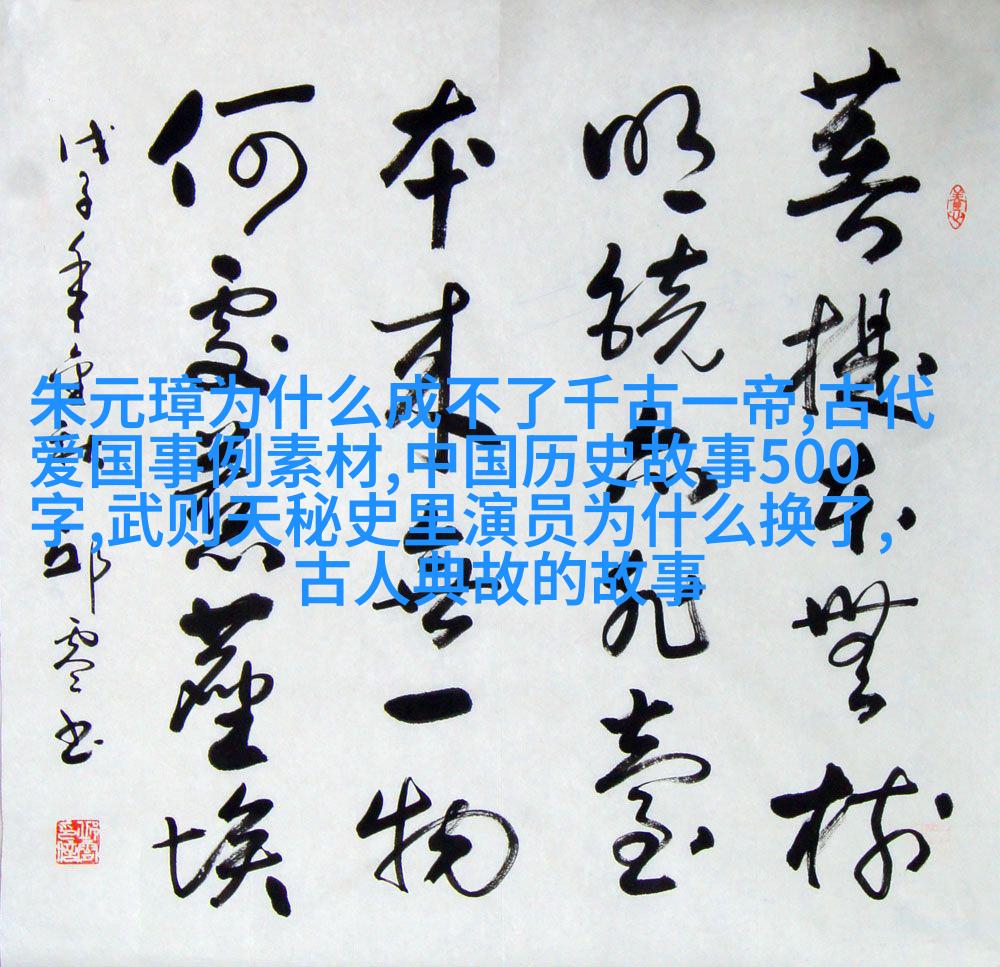 菩提本無樹
明鏡亦非臺
本來無一物
何處惹塵埃
戊子年 邱零书
朱元璋为什么成不了千古一帝,古代
爱国事例素材,中国历史故事500
字,武则天秘史里演员为什么换了,
古人典故的故事